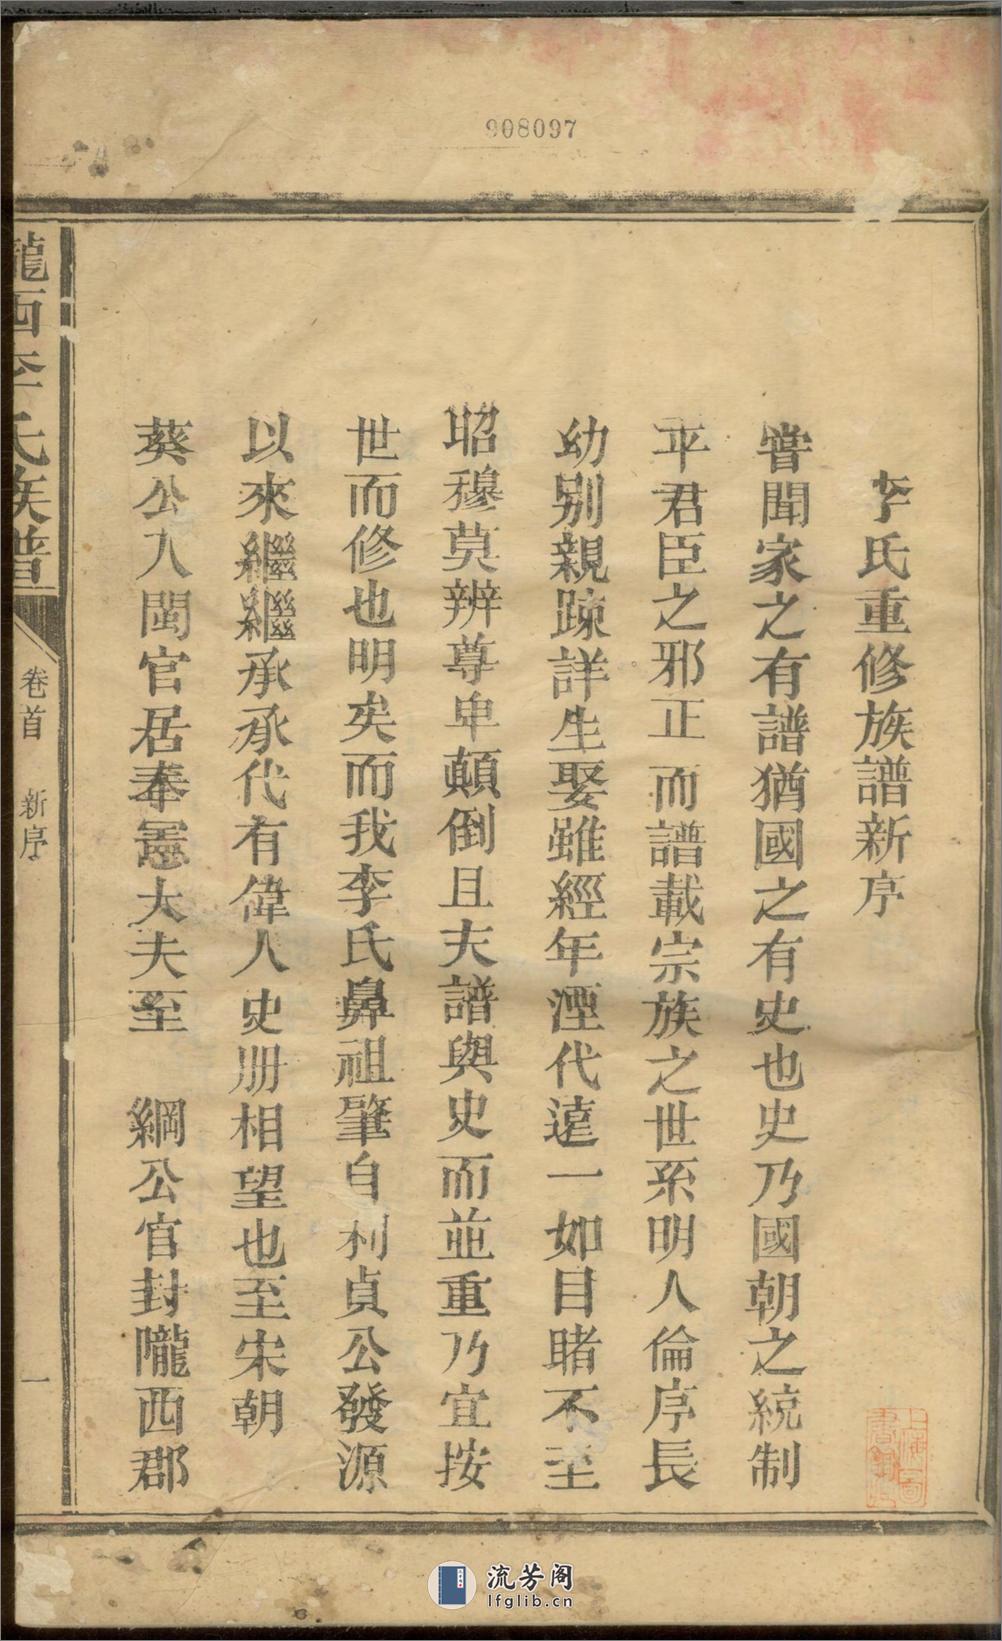 908097
李氏重修族譜新序
嘗聞家之有譜猶國之有史也史乃國朝之統制
平君臣之邪正而譜載宗族之世系明人倫序長
幼別親疎詳生娶雖經年湮代遠一如目睹不至
昭穆莫辨尊卑顛倒且夫譜與史而並重乃宜按
世而修也明矣而我李氏鼻祖肇自利貞公發源
以來繼繼承承代有偉人史册相望也至宋朝
葵公入閩官居奉憲大夫至 綱公官封隴西郡
隴西李氏族譜
卷首 新序
一
上海圖書館
流芳阁
lfglib.cn